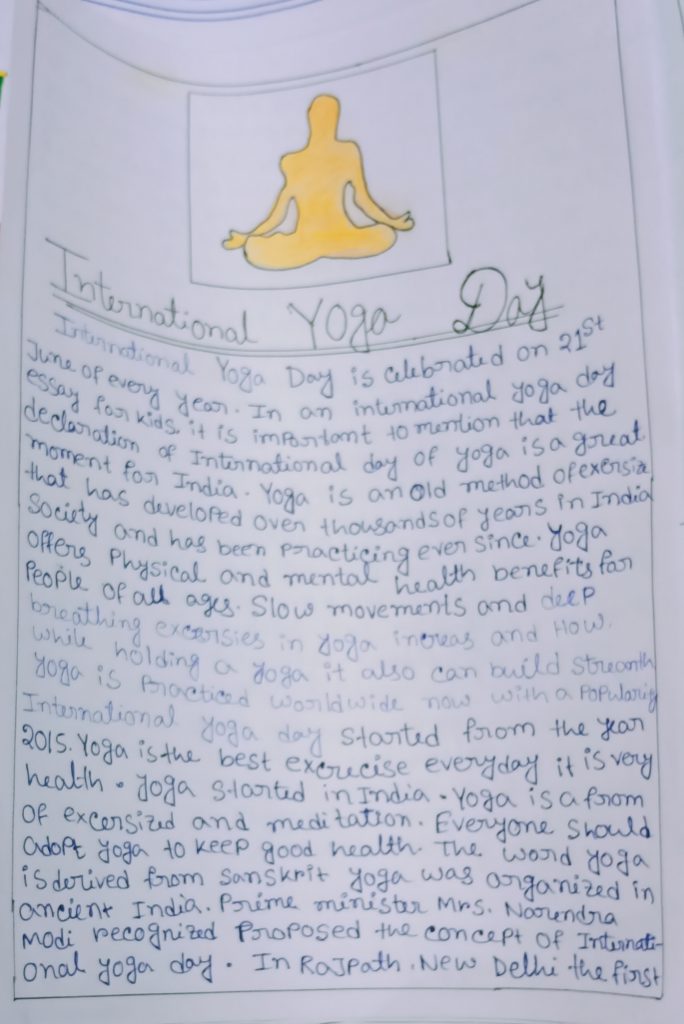 International Yoga Day
International Yoga Day is celebrated on 21st
June of every year. In an international yoga day
essay for kids, it is important to mention that the
declaration of International day of yoga is a great
moment for India. Yoga is an old method of exersia
that has developed over thousands of years in India
Society and has been practicing ever since. Yoga
offers Physical and mental health benefits for
People of all ages. Slow movements and deep
breathing excersies in yoga increas and How.
while holding a yoga it also can build
yoga is Practiced worldwide now with a Popularity
International yoga day started from the year
2015. Yoga is the best excrecise everyday it is very
health. Yoga started in India. Yoga is a from
of excersized and meditation. Everyone should
adopt yoga to keep good health. The word yoga
is derived from Sanskrit yoga was organized in
ancient India. Prime minister Mrs. Narendra
Modi recognized Proposed the concept of Internati-
onal yoga day. In RaJpath. New Delhi the first